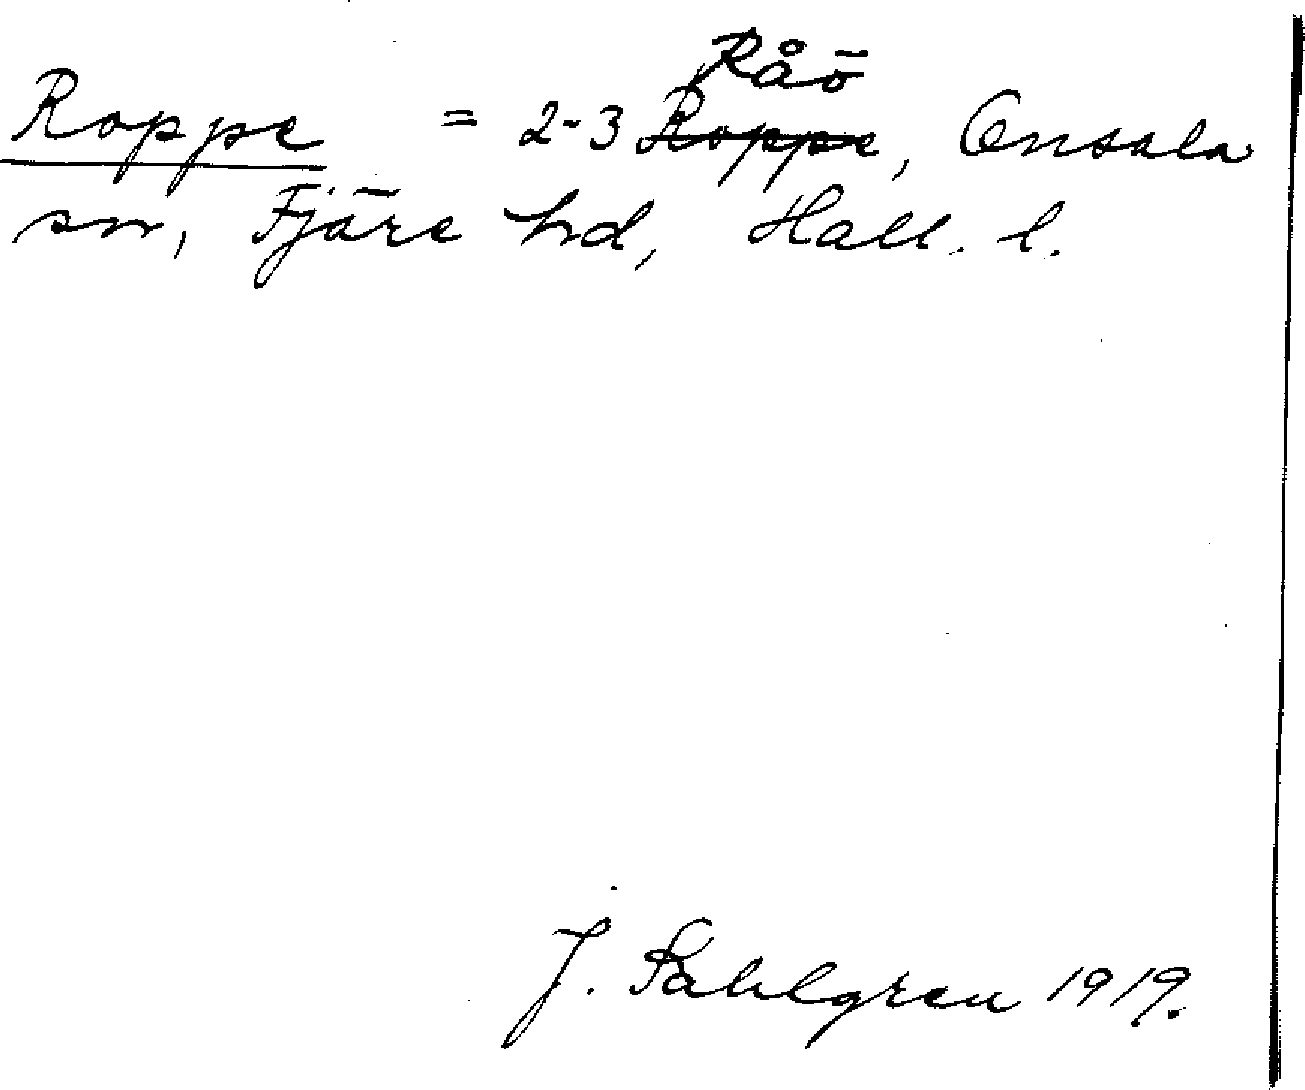 Roppe = 2-3 Råö Roppe, Onsala
sn, Fjäre hd, Hall. l.
J. Sahlgren 1919.